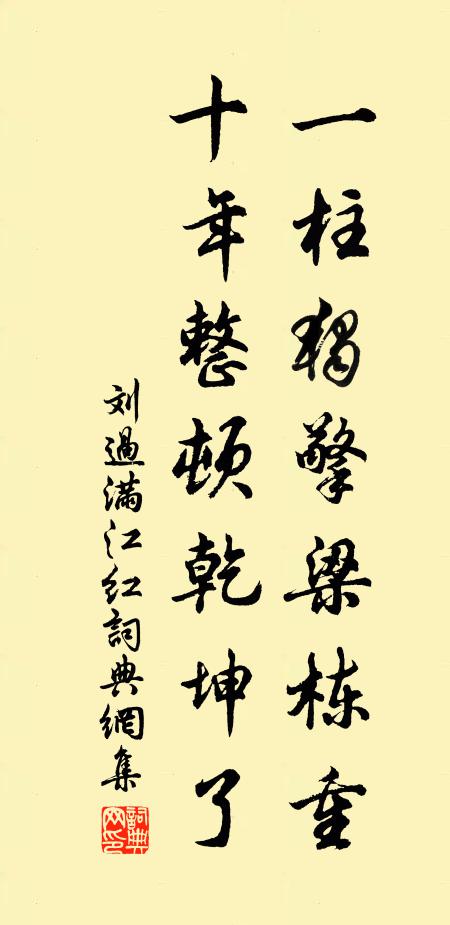 一柱獨擎梁栋重
十年整顿乾坤了
刘過满江红詞典網集
詞典网印